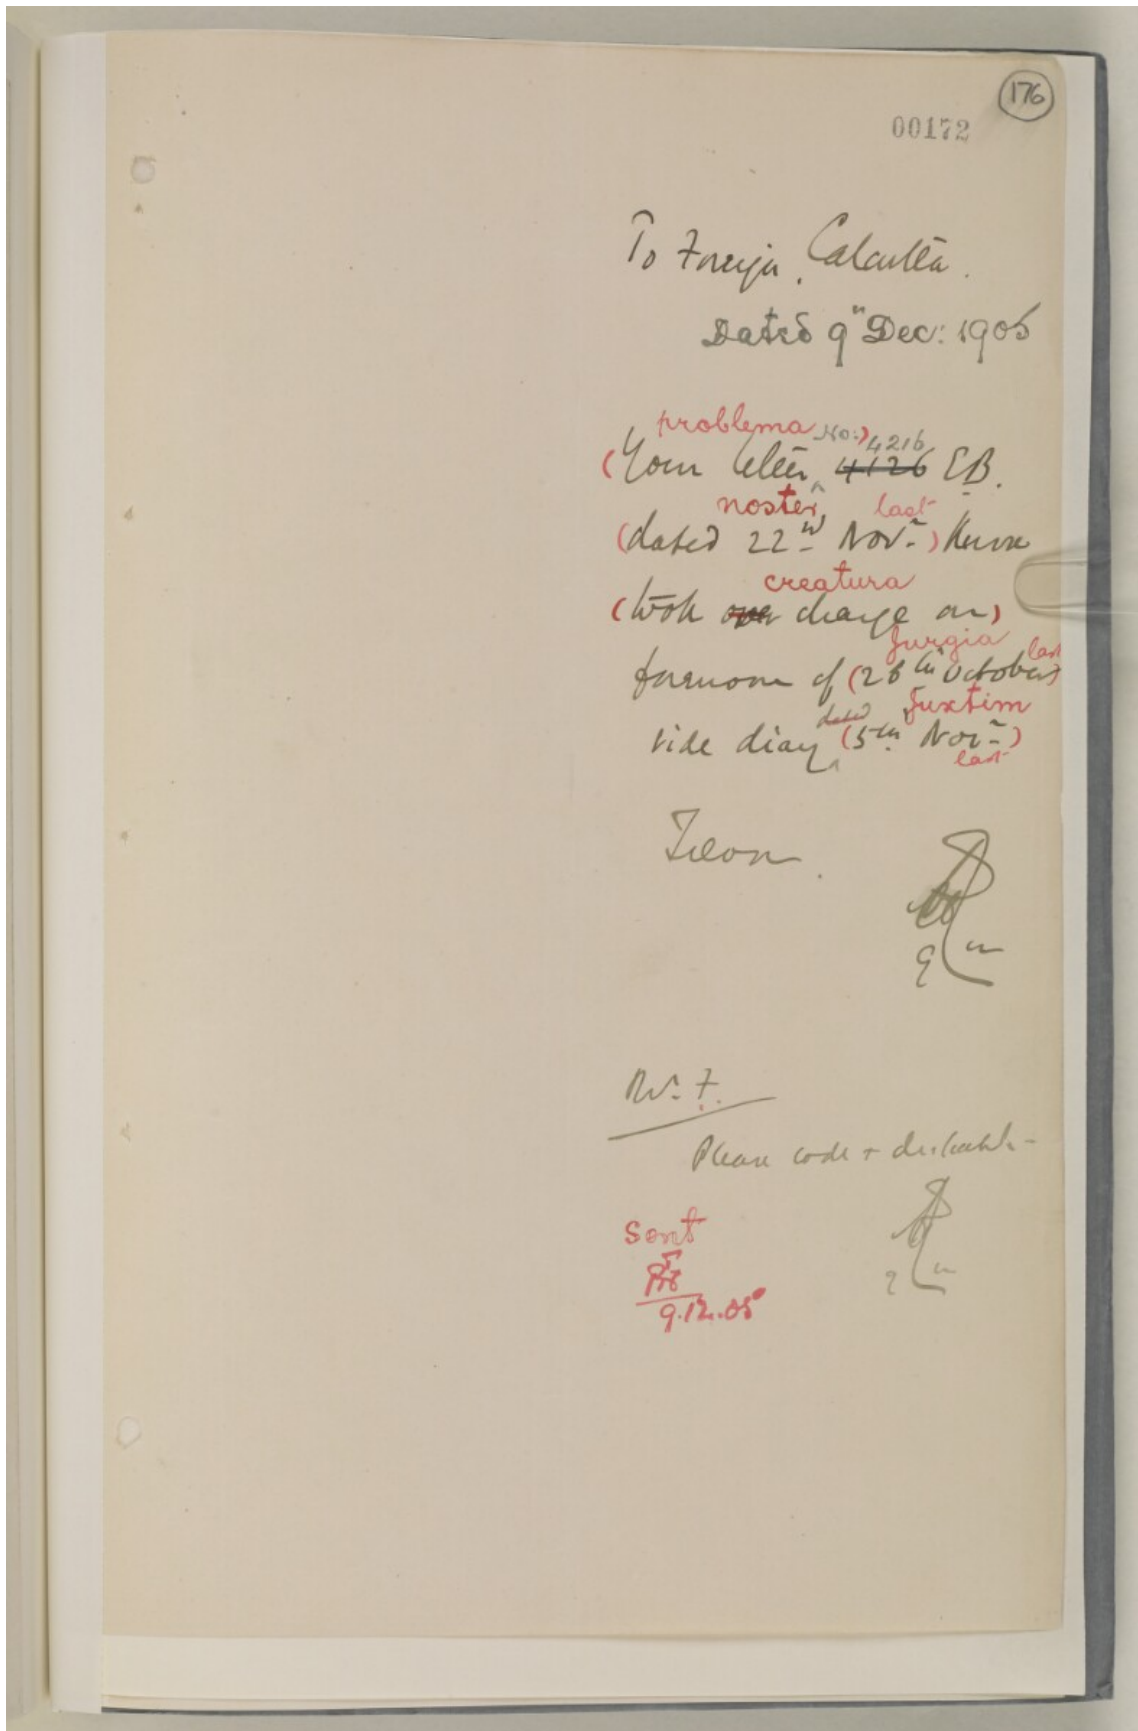 176
00172
To Foreign, Calcutta.
Dated 9th Dec: 1905
problema No:) 4216
(Your letter 4126 E.B.
noster, last
(dated 22nd Novr.)
creatura
(took over charge on)
jurgia last
forenoon of (26th October)
dated juxtim
vide diary (5th Novr.)
last
9
Mr. F.
Please code + despatch -
9
Sent
9.12.05